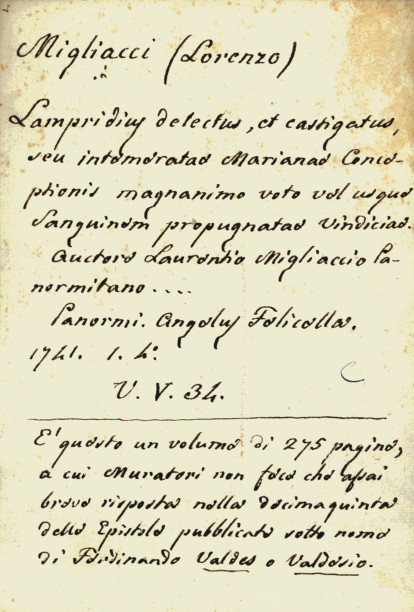 Migliacci (Lorenzo)
Lampridius detectus, et castigatus,
seu intemeratae Marianae Conce-
ptionis magnanimo voto vel usque
Sanguinem propugnatae Vindiciae.
Auctore Laurentio Migliaccio Pa-
normitano....
Panormi. Angelus Felicella.
1741. 1. 4.º
U. V. 34.
E' questo un volume di 275 pagine,
a cui Muratori non fece che assai
breve risposta nella decimaquinta
delle Epistole pubblicate sotto nome
di Ferdinando Valdes o Valdesio.